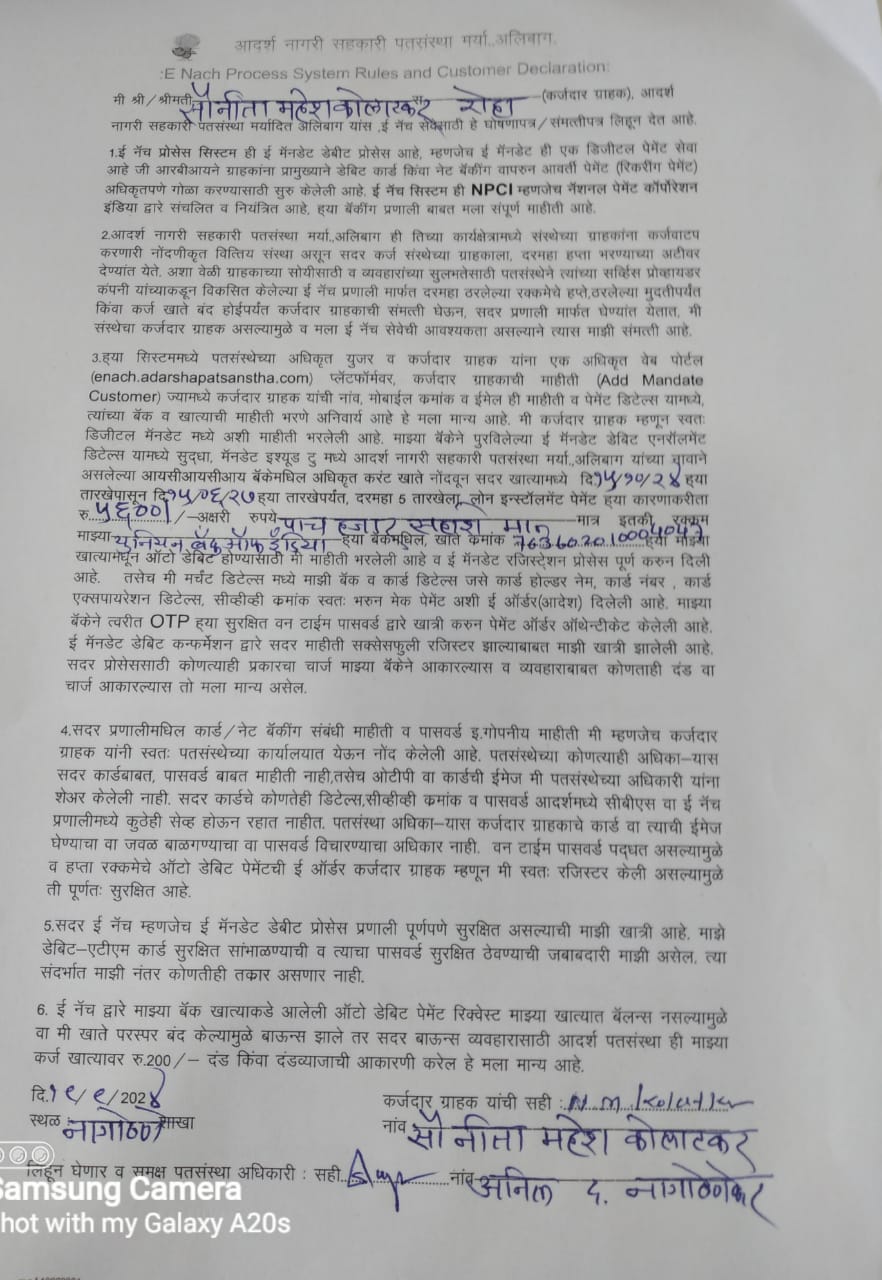 आदर्श नागरी सहकारी पतसंस्था मर्या.,अलिबाग.
:E Nach Process System Rules and Customer Declaration:
मी श्री/श्रीमती सौ नीता महेश कोलाटकर रा रोहा (कर्जदार ग्राहक), आदर्श
नागरी सहकारी पतसंस्था मर्यादित अलिबाग यांस ,ई नॅच सेवेसाठी हे घोषणापत्र/संमत्तीपत्र लिहून देत आहे.
1.ई नॅच प्रोसेस सिस्टम ही ई मॅनडेट डेबीट प्रोसेस आहे, म्हणजेच ई मॅनडेट ही एक डिजीटल पेमेंट सेवा
आहे जी आरबीआयने ग्राहकांना प्रामुख्याने डेबिट कार्ड किंवा नेट बॅकींग वापरुन आवर्ती पेमेंट (रिकरींग पेमेंट)
अधिकृतपणे गोळा करण्यासाठी सुरु केलेली आहे. ई नॅच सिस्टम ही NPCI म्हणजेच नॅशनल पेमेंट कॉर्पोरेशन
इंडिया द्वारे संचलित व नियंत्रित आहे, ह्या बॅकींग प्रणाली बाबत मला संपूर्ण माहीती आहे.
2.आदर्श नागरी सहकारी पतसंस्था मर्या.,अलिबाग ही तिच्या कार्यक्षेत्रामध्ये संस्थेच्या ग्राहकांना कर्जवाटप
करणारी नोंदणीकृत वित्तिय संस्था असून सदर कर्ज संस्थेच्या ग्राहकाला, दरमहा हप्ता भरण्याच्या अटीवर
देण्यांत येते. अशा वेळी ग्राहकाच्या सोयीसाठी व व्यवहारांच्या सुलभतेसाठी पतसंस्थेने त्यांच्या सर्व्हिस प्रोव्हायडर
कंपनी यांच्याकडून विकसित केलेल्या ई नॅच प्रणाली मार्फत दरमहा ठरलेल्या रक्कमेचे हप्ते,ठरलेल्या मुदतीपर्यंत
किंवा कर्ज खाते बंद होईपर्यंत कर्जदार ग्राहकाची संमत्ती घेऊन, सदर प्रणाली मार्फत घेण्यांत येतात, मी
संस्थेचा कर्जदार ग्राहक असल्यामुळे व मला ई नॅच सेवेची आवश्यकता असल्याने त्यास माझी संमत्ती आहे.
3.ह्या सिस्टममध्ये पतसंस्थेच्या अधिकृत युजर व कर्जदार ग्राहक यांना एक अधिकृत वेब पोर्टल
(enach.adarshapatsanstha.com) प्लॅटफॉर्मवर, कर्जदार ग्राहकाची माहीती (Add Mandate
Customer) ज्यामध्ये कर्जदार ग्राहक यांची नांव, मोबाईल कमांक व ईमेल ही माहीती व पेमेंट डिटेल्स यामध्ये,
त्यांच्या बॅक व खात्याची माहीती भरणे अनिवार्य आहे हे मला मान्य आहे. मी कर्जदार ग्राहक म्हणून स्वतः
डिजीटल मॅनडेट मध्ये अशी माहीती भरलेली आहे. माझ्या बॅकेने पुरविलेल्या ई मॅनडेट डेबिट एनरॉलमेंट
डिटेल्स यामध्ये सुद्धा, मॅनडेट इश्यूड टु मध्ये आदर्श नागरी सहकारी पतसंस्था मर्या.,अलिबाग यांच्या नावाने
असलेल्या आयसीआयसीआय बॅकेमधिल अधिकृत करंट खाते नोंदवून सदर खात्यामध्ये दि.१५/१०/२४ ह्या
तारखेपासून दि.१५/०६/२७ ह्या तारखेपर्यंत, दरमहा 5 तारखेला, लोन इन्स्टॉलमेंट पेमेंट ह्या कारणाकरीता
रु. ५६००/ /-अक्षरी रुपये पाच हजार सहाशे मात्र मात्र इतकी रक्कम
माझ्या युनियन बँक ऑफ इंडिया ह्या बॅकेमधिल, खाते कमांक ह्या माझ्या
खात्यामधून ऑटो डेबिट होण्यासाठी मी माहीती भरलेली आहे व ई मॅनडेट रजिस्ट्रेशन प्रोसेस पूर्ण करुन दिली
आहे. तसेच मी मर्चंट डिटेल्स मध्ये माझी बॅक व कार्ड डिटेल्स जसे कार्ड होल्डर नेम, कार्ड नंबर , कार्ड
एक्सपायरेशन डिटेल्स, सीव्हीव्ही कमांक स्वतः भरुन मेक पेमेंट अशी ई ऑर्डर(आदेश) दिलेली आहे. माझ्या
बॅकेने त्वरीत OTP ह्या सुरक्षित वन टाईम पासवर्ड द्वारे खात्री करुन पेमेंट ऑर्डर ऑथेन्टीकेट केलेली आहे.
ई मॅनडेट डेबिट कन्फर्मेशन द्वारे सदर माहीती सक्सेसफुली रजिस्टर झाल्याबाबत माझी खात्री झालेली आहे.
सदर प्रोसेससाठी कोणत्याही प्रकारचा चार्ज माझ्या बॅकेने आकारल्यास व व्यवहाराबाबत कोणताही दंड वा
चार्ज आकारल्यास तो मला मान्य असेल.
4.सदर प्रणालीमधिल कार्ड/नेट बॅकींग संबंधी माहीती व पासवर्ड इ.गोपनीय माहीती मी म्हणजेच कर्जदार
ग्राहक यांनी स्वतः पतसंस्थेच्या कार्यालयात येऊन नोंद केलेली आहे. पतसंस्थेच्या कोणत्याही अधिका–यास
सदर कार्डबाबत, पासवर्ड बाबत माहीती नाही,तसेच ओटीपी वा कार्डची ईमेज मी पतसंस्थेच्या अधिकारी यांना
शेअर केलेली नाही. सदर कार्डचे कोणतेही डिटेल्स,सीव्हीव्ही कमांक व पासवर्ड आदर्शमध्ये सीबीएस वा ई नॅच
प्रणालीमध्ये कुठेही सेव्ह होऊन रहात नाहीत. पतसंस्था अधिका–यास कर्जदार ग्राहकाचे कार्ड वा त्याची ईमेज
घेण्याचा वा जवळ बाळगण्याचा वा पासवर्ड विचारण्याचा अधिकार नाही. वन टाईम पासवर्ड पद्धत असल्यामुळे
व हप्ता रक्कमेचे ऑटो डेबिट पेमेंटची ई ऑर्डर कर्जदार ग्राहक म्हणून मी स्वतः रजिस्टर केली असल्यामुळे
ती पूर्णतः सुरक्षित आहे.
5.सदर ई नॅच म्हणजेच ई मॅनडेट डेबीट प्रोसेस प्रणाली पूर्णपणे सुरक्षित असल्याची माझी खात्री आहे. माझे
डेबिट–एटीएम कार्ड सुरक्षित सांभाळण्याची व त्याचा पासवर्ड सुरक्षित ठेवण्याची जबाबदारी माझी असेल, त्या
संदर्भात माझी नंतर कोणतीही तकार असणार नाही.
6. ई नॅच द्वारे माझ्या बॅक खात्याकडे आलेली ऑटो डेबिट पेमेंट रिक्वेस्ट माझ्या खात्यात बॅलन्स नसल्यामुळे
वा मी खाते परस्पर बंद केल्यामुळे बाऊन्स झाले तर सदर बाऊन्स व्यवहारासाठी आदर्श पतसंस्था ही माझ्या
कर्ज खात्यावर रु.200/– दंड किंवा दंडव्याजाची आकारणी करेल हे मला मान्य आहे.
दि.१९/९/2024 कर्जदार ग्राहक यांची सही :
स्थळ : नागोठणे शाखा नांव सौ नीता महेश कोलाटकर
लिहून घेणार व समक्ष पतसंस्था अधिकारी : सही नांव अनिल द. नागोठणेकर
Samsung Camera
hot with my Galaxy A20s